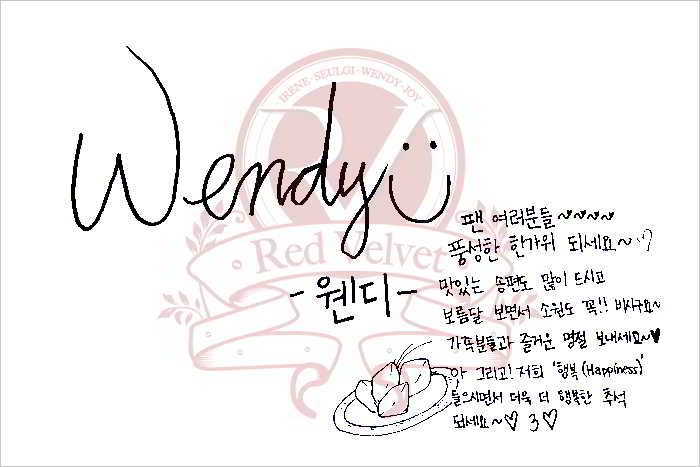 · IRENE · SEULGI · WENDY · JOY ·
RV
Wendy
Red Velvet
- 웬디 -
팬 여러분들~♥♥♥♥
풍성한 한가위 되세요~♡
맛있는 송편도 많이 드시고
보름달 보면서 소원도 꼭!! 비시구요~
가족분들과 즐거운 명절 보내세요~♥
아 그리고! 저희 '행복(Happiness)'
들으시면서 더욱 더 행복한 추석
되세요~♡ 3♡